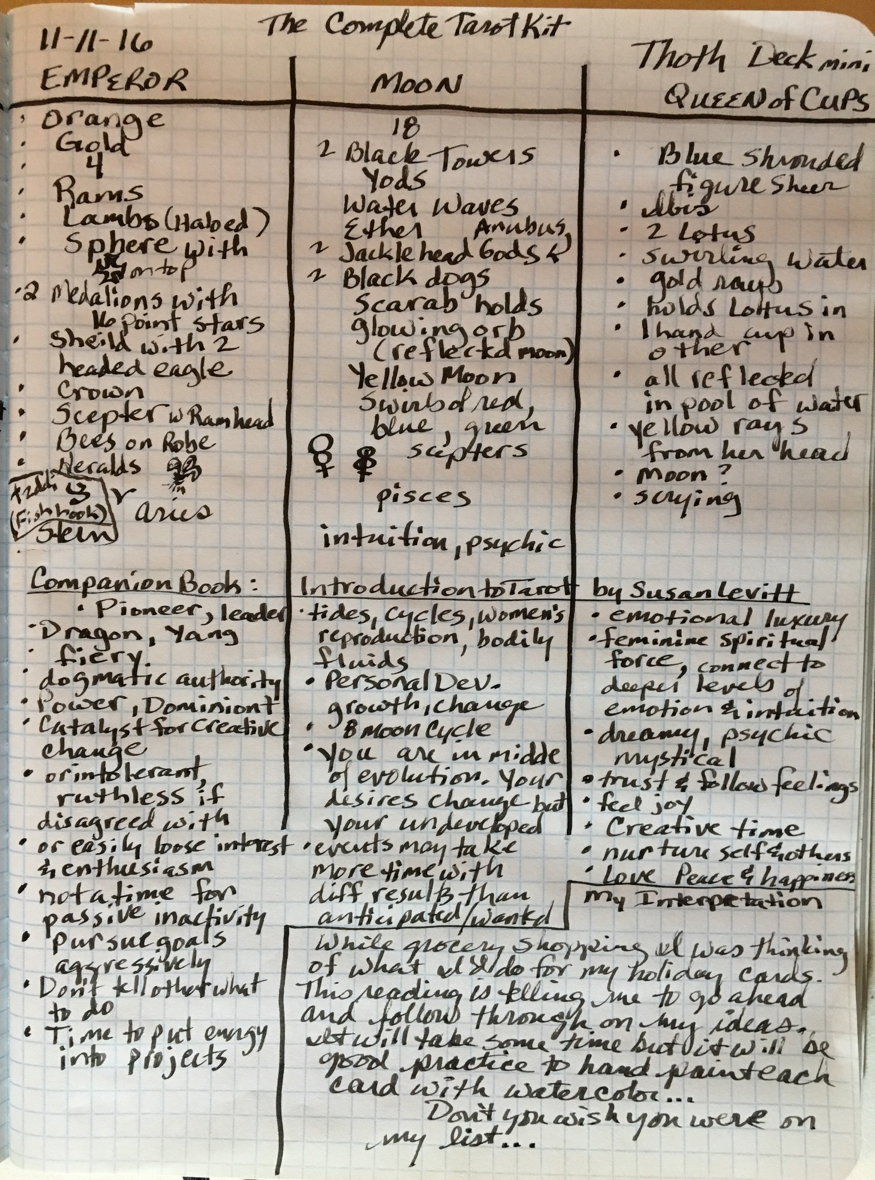 11-11-16
The Complete Tarot Kit
Thoth Deck mini
EMPEROR
Orange
Gold
4
Rams
Lambs (Haloed)
Sphere with
on top
2 Medalions with
16 point stars
Sheild with 2
headed eagle
Crown
Scepter w Ram head
Bees on Robe
Heralds
(Fish hook)
aries
MOON
18
2 Black Towers
Yods
Water Waves
Ether Anubus,
2 Jacklehead Gods
2 Black dogs
Scarab holds
glowing orb
(reflectd moon)
Yellow Moon
Swirls of red,
blue, green
♀ scepters
pisces
intuition, psychic
QUEEN of CUPS
Blue Shrouded
figure Sheer
Ibis
2 Lotus
swirling water
gold rays
holds Lottus in
1 hand cup in
other
all reflected
in pool of water
yellow rays
from her head
moon?
scrying
Companion Book: Introduction to Tarot by Susan Levitt
Pioneer, leader
Dragon, Yang
fiery.
dogmatic authority
Power, Dominiont
Catalyst for Creative
change
or intolerant,
ruthless if
disagreed with
or easily loose interest
& enthusiasm
not a time for
passive inactivity
pursue goals
aggressively
Don't tell other what
to do
Time to put energy
into projects
tides, cycles, women's
reproduction, bodily
fluids
Personal Dev.
growth, change
8 moon Cycle
You are in midde
of evolution. Your
desires change but
your undeveloped
events may take
more time with
diff results than
anticipated/wantd
emotional luxury
feminine spiritual
force, connect to
deeper levels of
emotion & intuition
dreamy, psychic
mystical
trust & follow feelings
feel joy
Creative time
nurture self & others
Love Peace & happiness
My Interpretation
While grocery shopping I was thinking
of what I'd do for my holiday cards.
This reading is telling me to go ahead
and follow through on my ideas.
It will take some time but it will be
good practice to hand paint each
card with watercolor...
Don't you wish you were on
my list...